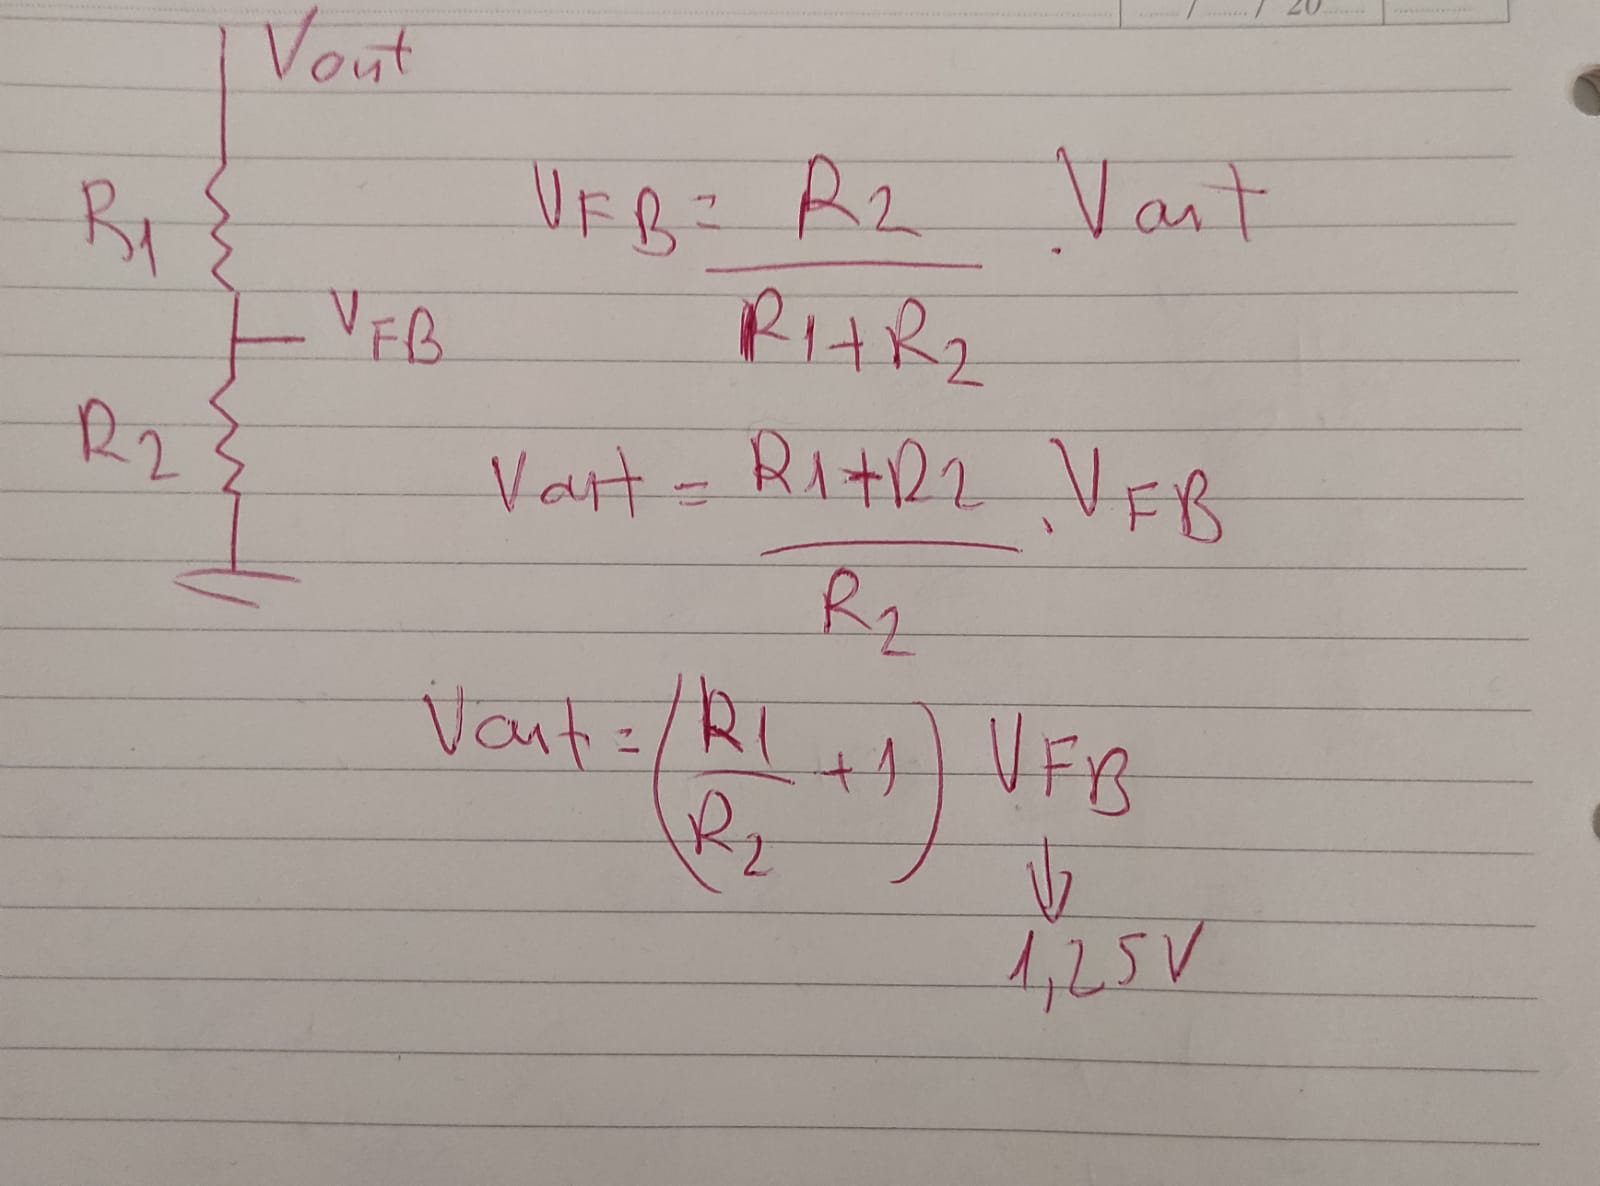 / / 20
Vout
R1
VFB
R2
VFB = R2 / R1+R2 . Vout
Vout = R1+R2 / R2 . VFB
Vout = (R1 / R2 + 1) VFB
↓
1,25V